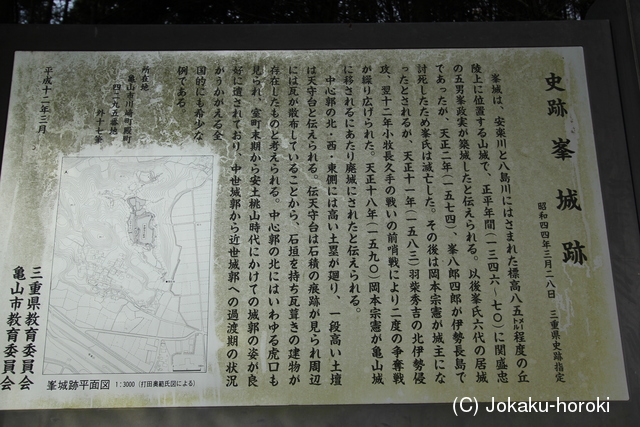 史跡　峯城跡
昭和四四年三月二八日　三重県史跡指定
峯城は、安楽川と八島川にはさまれた標高八五メートル程度の丘
陵上に位置する山城で、正平年間(一三四六~七〇)に関盛忠
の五男峯政実が築城したと伝えられる。以後峯氏六代の居城
であったが、天正二年(一五七四)、峯八郎四郎が伊勢長島で
討死したため峯氏は滅亡した。その後は岡本宗憲が城主にな
ったとされるが、天正十一年(一五八三)羽柴秀吉の北伊勢侵
攻、翌十二年小牧長久手の戦いの前哨戦により二度の争奪戦
が繰り広げられた。天正十八年(一五九〇)岡本宗憲が亀山城
に移されるにあたり廃城にされたと伝えられる。
中心郭の北・西・東側には高い土塁が廻り、一段高い土壇
は天守台と伝えられる。伝天守台は石積の痕跡が見られ周辺
には瓦が散布していることから、石垣を持ち瓦葺きの建物が
存在したものと考えられる。中心郭の北にはいわゆる虎口も
見られ、室町末期から安土桃山時代にかけての城郭の姿が良
好に遺されており、中世城郭から近世城郭への過渡期の状況
がうかがえる全
国的にも希少な
例である。
所在地
亀山市川崎町殿町
四二九五番地
外十七筆
平成十二年三月
三重県教育委員会
亀山市教育委員会
峯城跡平面図 1:3000 (打田奥範氏図による)
(C) Jokaku-horoki